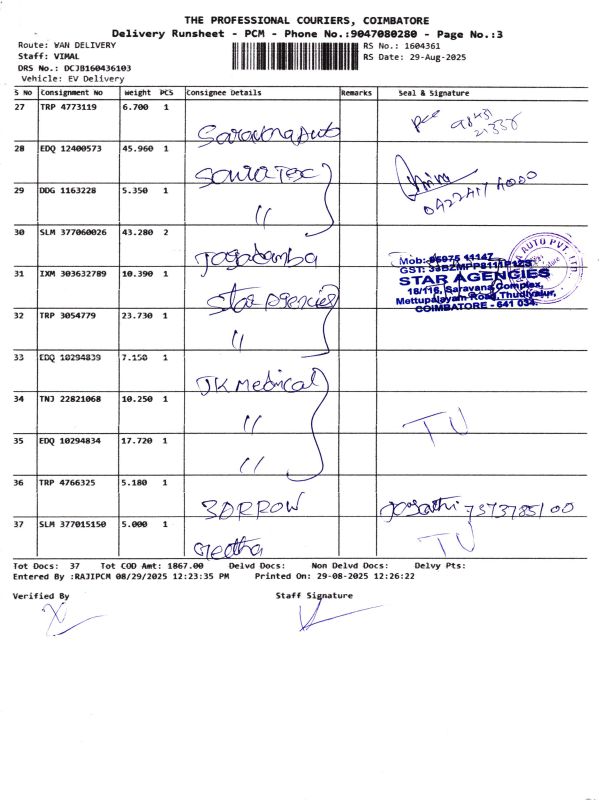 THE PROFESSIONAL COURIERS, COIMBATORE
Delivery Runsheet - PCM - Phone No.:9047080280 - Page No.:3
Route: WAN DELIVERY
Staff: VIMAL
DRS No.: DCJB160436103
Vehicle: EV Delivery
RS No.: 1604361
RS Date: 29-Aug-2025
S No Consignment No Weight PCS Consignee Details Remarks Seal & Signature
27 TRP 4773119 6.700 1 Saravana Auto
28 EDQ 12400573 45.960 1
29 DDG 1163228 5.350 1 "
30 SLM 377060026 43.280 2 Jagadamba
AUTO PVT. LTD.
31 IXM 303632789 10.390 1 Star Agencies
STAR AGENCIES
18/116, Saravana Complex,
Mettupalayam Road, Thudiyalur,
COIMBATORE - 641 034.
32 TRP 3054779 23.730 1 "
33 EDQ 10294839 7.150 1 JK Medical
34 TNJ 22821068 10.250 1 " TU
35 EDQ 10294834 17.720 1 "
36 TRP 4766325 5.180 1 3DRROW 7373785100
37 SLM 377015150 5.000 1 TU
Tot Docs: 37 Tot COD Amt: 1867.00 Delvd Docs: Non Delvd Docs: Delvy Pts:
Entered By :RAJIPCM 08/29/2025 12:23:35 PM Printed On: 29-08-2025 12:26:22
Verified By Staff Signature